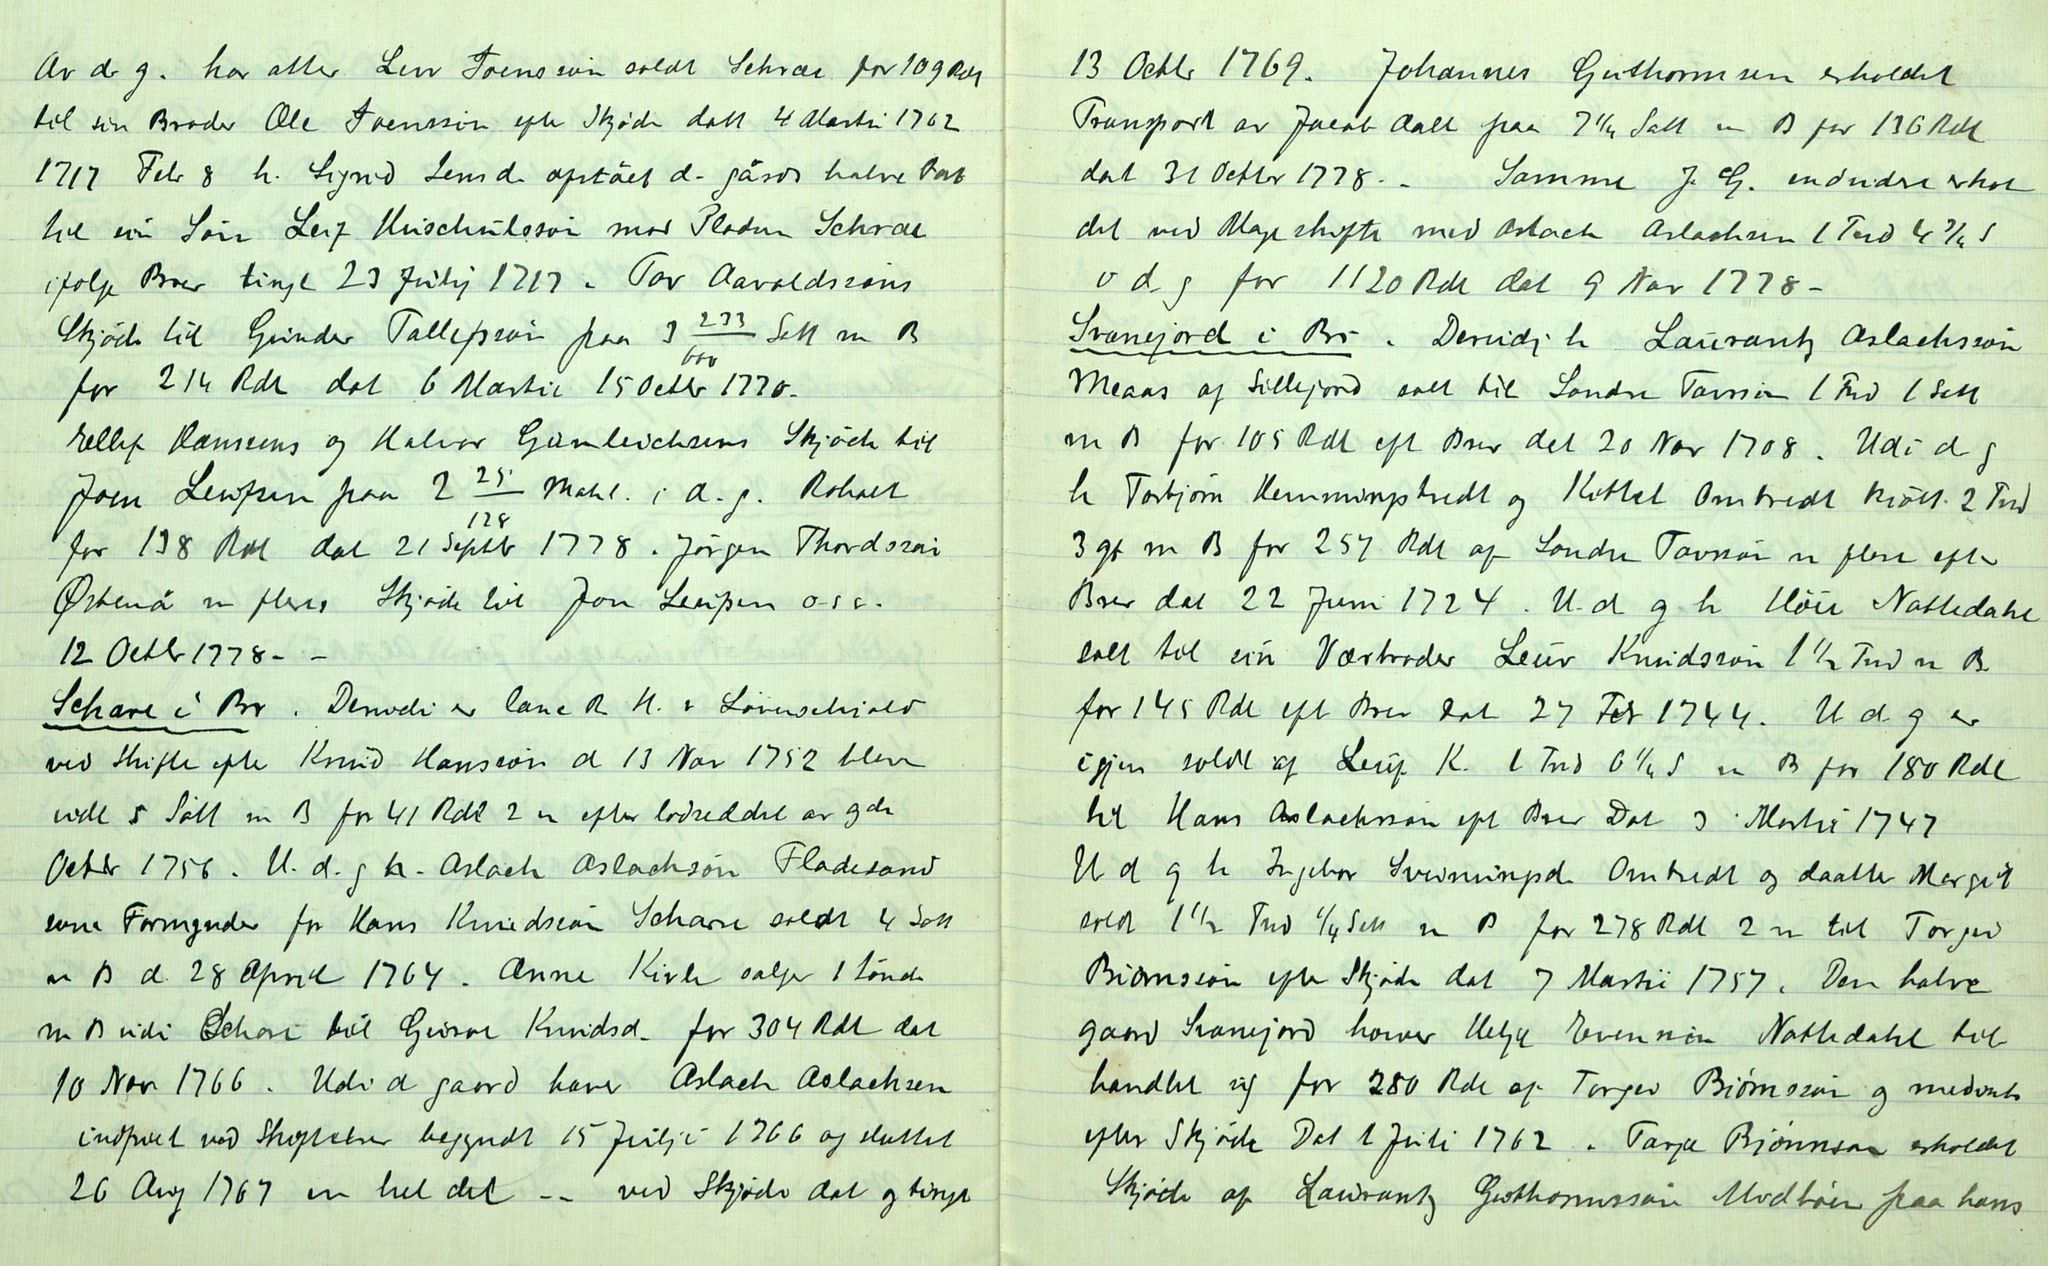 Av d. g. har atter Levv Svensson soldt Schrae for 109 Rdl
til sin Broder Ole Svensson efter Skjøde datt 4 Marti 1762
1717 Febr 8 h. Sigrid Jensd. opladt d. gårds halve Part
til sin Søn Leif Huischulssøn mod Pladsen Schrae
ifølge Brev tingl 23 Julij 1717. Tov Aavoldssøns
Skjøde til Gunder Tallefssøn paa 3 233/600 Sett m B
for 214 Rdl dat 6 Martii 15 Octbr 1770.
Ellef Hanssens og Halvor Gunleichsens Skjøde til
Joen Leufsen paa 2 25/128 Mæhl. i d. g. Roholt
for 138 Rdl dat 21 Septbr 1778. Jørgen Thordssøn
Østenå m fleres Skjøde til Jon Leufsen o.s.v.
12 Octbr 1778 - -
Schare i Br. Derudi er lanc R. H. v Løvenschiold
ved Skifte efter Knud Hanssøn d 13 Nov 1752 bleve
udl 5 Sått m B for 41 Rdl 2 m efter lodseddel av 9de
Octbr 1756. U. d. g h. Aslach Aslachsøn Fladesand
som Formynder for Hans Knudssøn Schare soldt 4 Sott
m B d. 28 April 1764. Anne Kivle solgr 1 tønde
m B udi Schare til Guroe Knudsd. for 304 Rdl dat
10 Nov 1766. Udi d gaard haver Aslach Aslachsen
indført ved Skiftebrev begyndt 15 Julji 1766 og sluttet
26 Aug 1767 en hel del -- ved Skjøde dat g tingl
13 Octbr 1769. Johannes Guthormsen erholdet
Transport av Jacob Aall paa 7 1/4 Sett m B for 136 Rdl
dat 31 Octbr 1778. - Samme J. G. endvidere erhol
det ved Mageskifte med Aslach Aslachsen 1 Tnd 4 3/4 S
v d. g for 1120 Rdl dat 9 Nov 1778 -
Svanejord i Br. Derudj h Laurantz Aslachssøn
Meaas af Sillejord solt til Sondre Tovssøn 1 Tnd 1 Sett
m B for 105 Rdl eft Brev det 20 Nov 1708. Udi d g
h Torbjørn Hemmingstvedt og Kittel Omtvedt kiøbt 2 Tnd
3 gt m B for 257 Rdl af Sondre Tovssøn m flere efter
Brev dat 22 Juni 1724. U. d g h Høie Nattedahl
solt til sin Værbroder Leuv Knudssøn 1 1/2 Tnd m B
for 145 Rdl eft Brev dat 27 Febr 1744. U d g er
igjen soldt af Leuf K. 1 Tnd 6 1/4 S m B for 180 Rdl
til Hans Aslachssøn eft Brev Dat 3 Martii 1747
U d g h Ingebor Svenningsd. Omtvedt og daatter Margit
soldt 1 1/2 Tnd 1/4 Sett m B for 278 Rdl 2 m til Torgiv
Biørnssøn efter Skjøde dat 7 Martii 1757. Den halve
gaard Svanejord haver Helje Evenssøn Nattedahl til
handlet sig for 280 Rdl af Torgiv Biørnssøn g medint.
efter Skjøde Dat 1 Juli 1762. Tarje Bjønnson erholdet
Skjøde af Laurantz Guthormssøn Modbøen paa hans